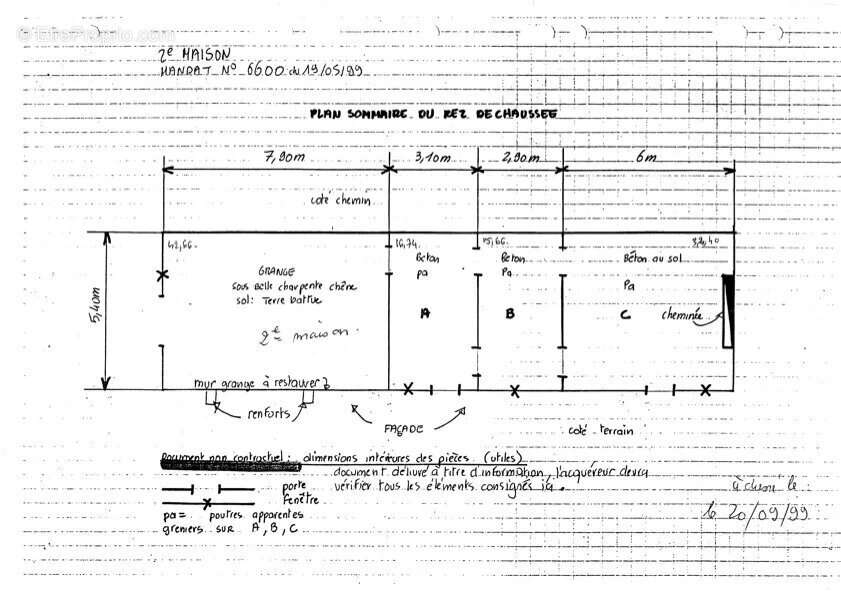 2e MAISON
MANDAT N° 6600 du 19/05/99
PLAN SOMMAIRE DU REZ DE CHAUSSEE
7,90m 3,10m 2,90m 6m
coté chemin
42,66 16,74 15,66 32,40
GRANGE
sous Belle charpente chêne
sol: Terre battue
Béton
pa
Béton
Pa
Béton au sol
Pa
5,40m
A B C cheminée
2e maison
mur grange à restaurer
renforts
FAÇADE
coté terrain
Document non contractuel: dimensions intérieures des pièces (utiles)
document délivré à titre d'information, l'acquéreur devra
vérifier tous les éléments consignés ici.
porte
fenêtre
pa= poutres apparentes
greniers sur A, B, C
le
le 20/09/99